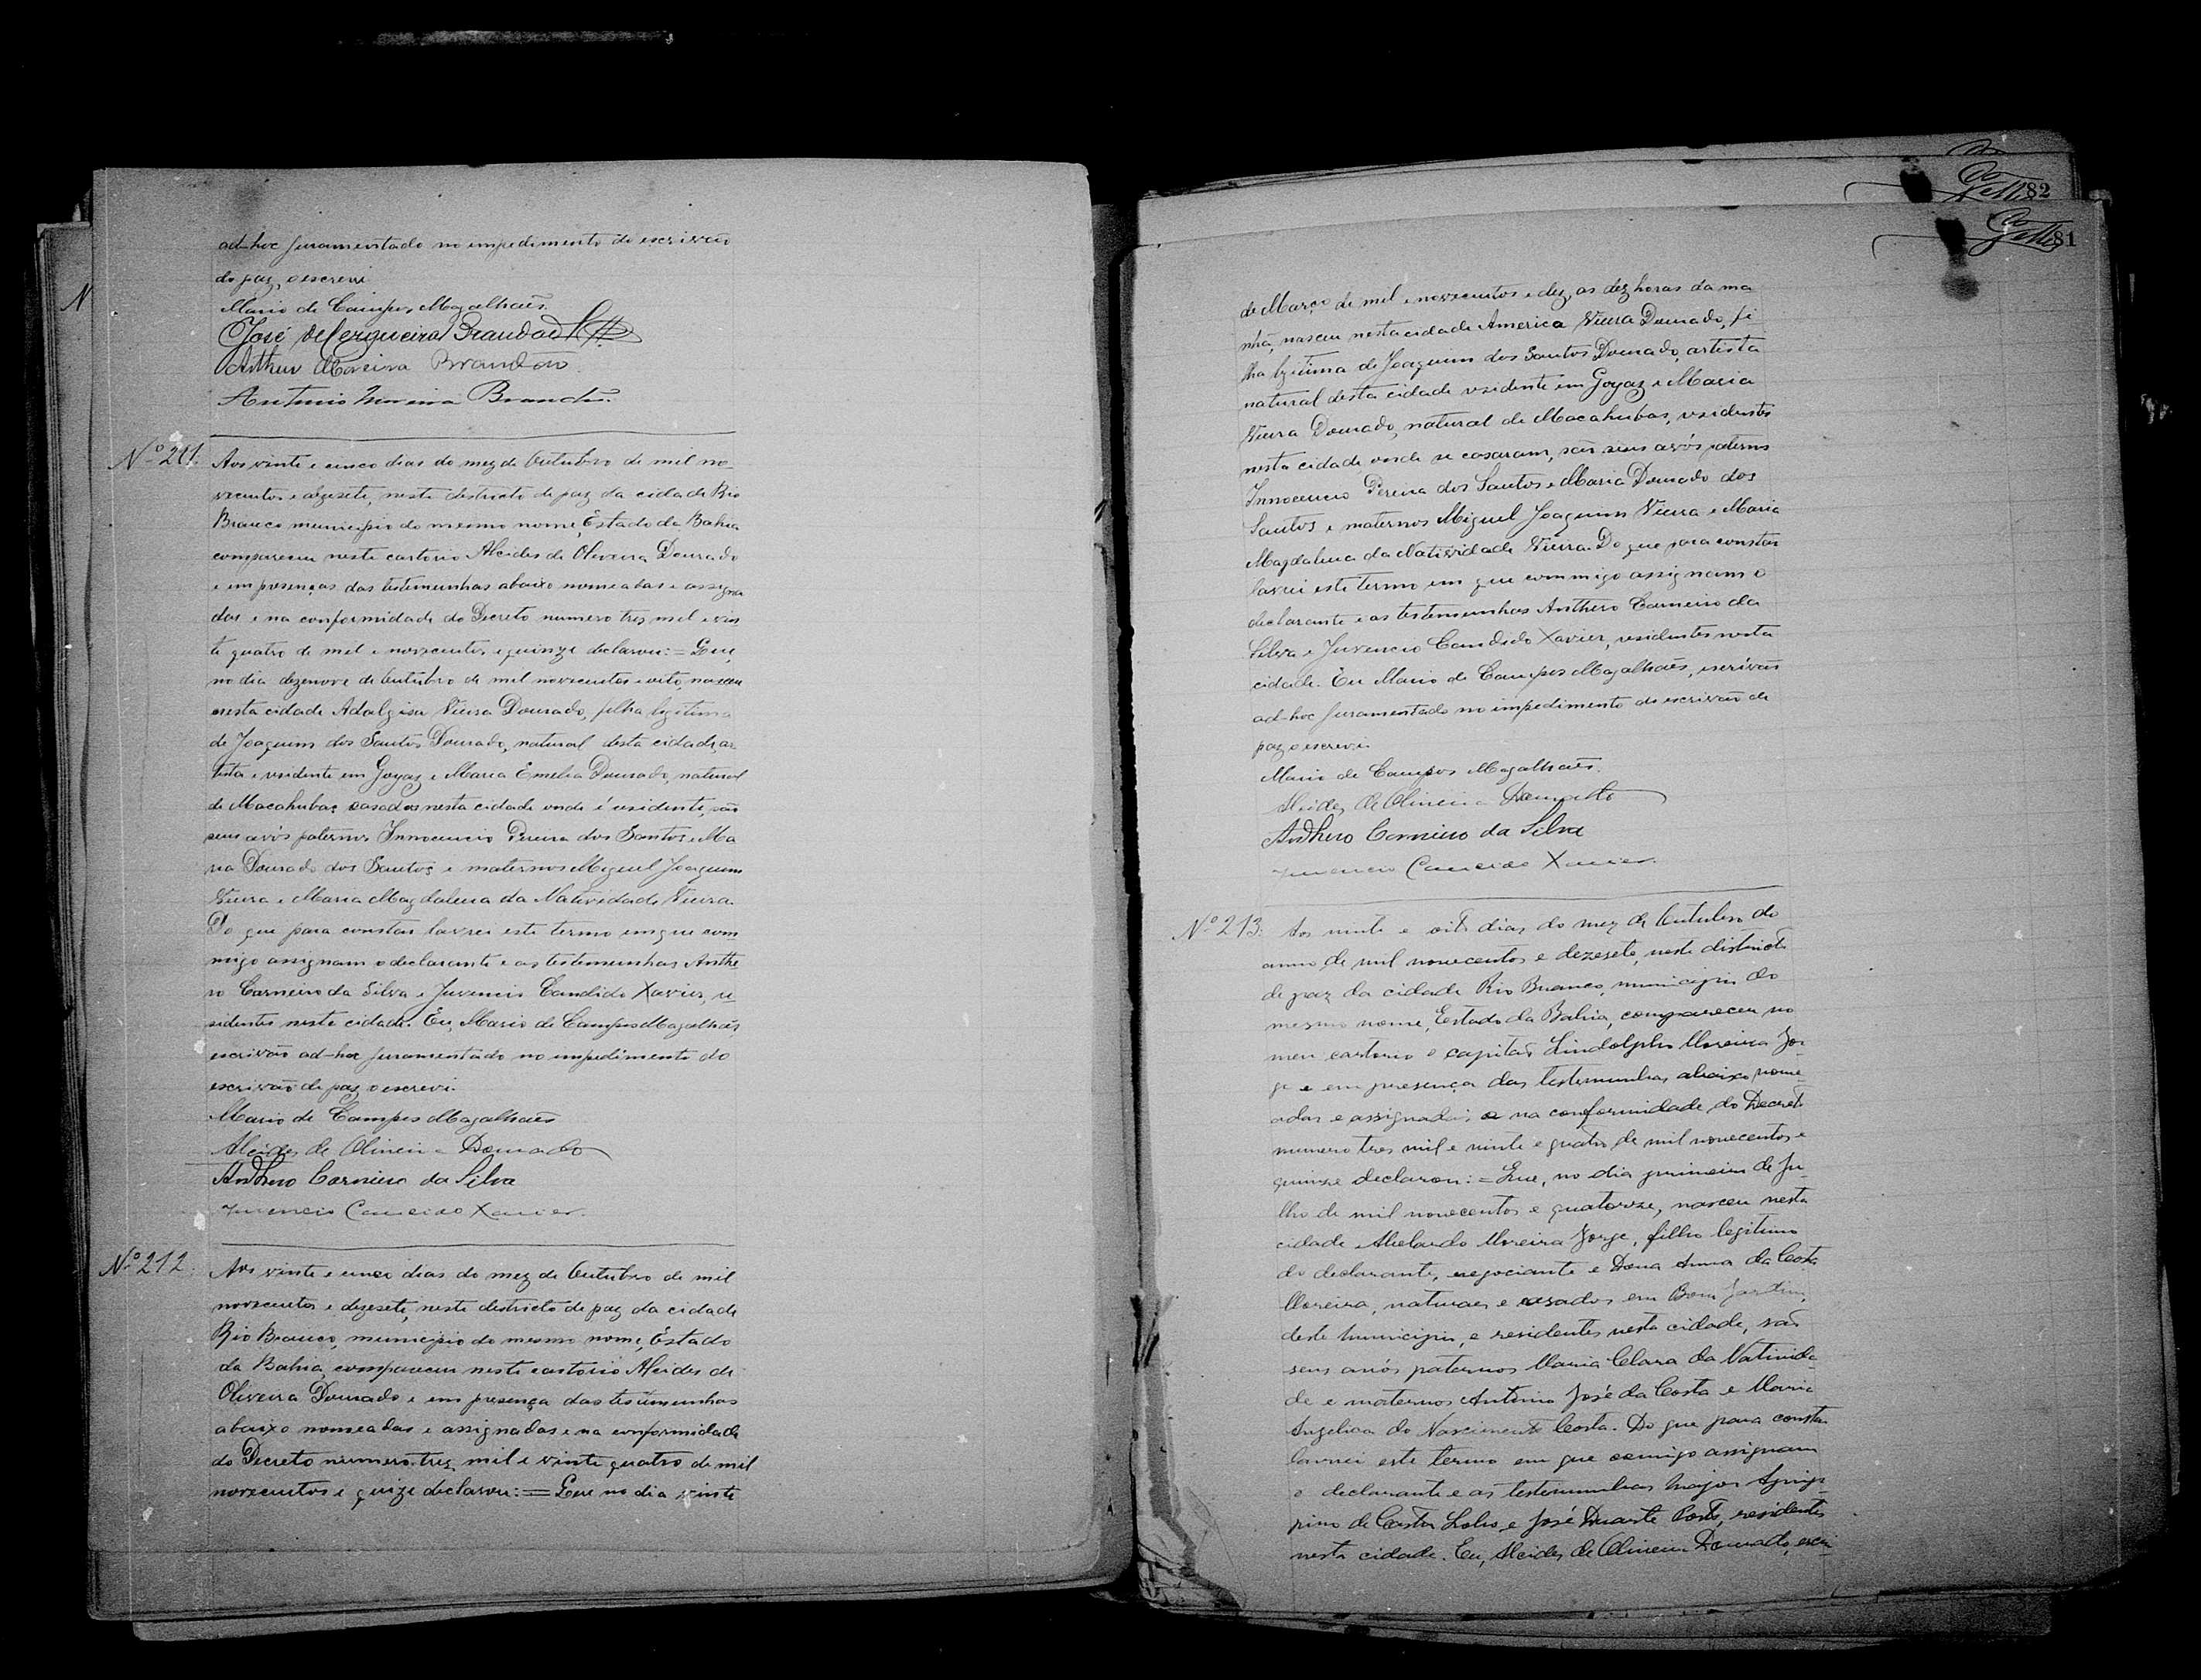 ad-hoc juramentado no impedimento do escrivão
de paz, o escrevi
Mario de Campos Magalhaẽs.
José de Cerqueira Brandão
Arthur Moreira Brandão.
Antonio Moreira Brandão.
Nº 211. Aos vinte e cinco dias do mez de Outubro de mil no-
vecentos e dezesete, neste destricto de paz da cidade Rio
Branco municipio do mesmo nome, Estado da Bahia
compareceu neste cartorio Alcides de Oliveira Dourado
e em presenças das testemunhas abaixo nomeadas e assigna
das e na conformidade do Decreto numero tres mil e vin
te quatro de mil e novecentos e quinze declarou: = Que,
no dia dezenove de Outubro de mil novecentos e oito, nasceu
nesta cidade Adalgisa Vieira Dourado, filha legitima
de Joaquim dos Santos Dourado, natural desta cidade, ar
tista e residente em Goyaz e Maria Emelia Dourado, natural
de Macahubas casados nesta cidade onde é residente, são
seus avós paternos Innocencio Pereira dos Santos e Ma
ria Dourado dos Santos e maternos Miguel Joaquim
Vieira e Maria Magdalena da Natividade Vieira.
Do que para constar lavrei este termo em que com
migo assignam o declarante e as testemunhas Anthe
ro Carneiro da Silva e Juvencio Candido Xavier, re
sidentes neste cidade. Eu, Mario de Campos Magalhaẽs,
escrivão ad-hoc juramentado no impedimento do
escrivão de paz, o escrevi.
Mario de Campos Magalhaẽs
Alcides de Oliveira Dourado
Anthero Carneiro da Silva
Juvencio Candido Xavier.
Nº 212. Aos vinte e cinco dias do mez de Outubro de mil
novecentos e dezesete, neste destricto de paz da cidade
Rio Branco, municipio do mesmo nome, Estado
da Bahia, compareceu neste cartorio Alcides de
Oliveira Dourado e em presença das testemunhas
abaixo nomeadas e assignadas e na conformidade
do Decreto numero tres mil e vinte quatro de mil
novecentos e quize declarou: = Que no dia vinte
82
81
de Março de mil e novecentos e dez, as dez horas da ma
nhã, nasceu nesta cidade America Vieira Dourado, fi
lha legitima de Joaquim dos Santos Dourado, artista
natural desta cidade residente em Goyaz e Maria
Vieira Dourado, natural de Macahubas, residentes
nesta cidade, onde se casaram, são seus avós paternos
Innocencio Pereira dos Santos e Maria Dourado dos
Santos e maternos Miguel Joaquim Vieira e Maria
Magdalena da Natividade Vieira. Do que para constar
lavrei este termo em que commigo assignam o
declarante e as testemunhas Anthero Carneiro da
Silva e Juvencio Candido Xavier, residentes nesta
cidade. Eu Mario de Campos Magalhaẽs, escrivão
ad-hoc juramentado no impedimento do escrivão de
paz o escrevi.
Mario de Campos Magalhaẽs.
Alcides de Oliveira Dourado
Anthero Carneiro da Silva
Juvencio Candido Xavier.
Nº 213. Aos vinte e oito dias do mez de Outubro do
anno de mil novecentos e dezesete, neste districto
de paz da cidade Rio Branco, municipio do
mesmo nome, Estado da Bahia, compareceu no
meu cartorio o capitão Lindolpho Moreira Jor-
ge e em presença das testemunhas abaixo nome-
adas e assignadas, e na conformidade do Decreto
numero tres mil e vinte e quatro de mil novecentos e
quinze declarou: = Que, no dia primeiro de Ju-
lho de mil novecentos e quatorze, nasceu nesta
cidade Abelardo Moreira Jorge, filho legitimo
do declarante, negociante e Dona Anna da Costa
Moreira, naturaes e casados em Bom Jardim,
deste municipio, e residentes nesta cidade, são
seus avós paternos Maria Clara da Nativida-
de e maternos Antonio José da Costa e Maria
Angelica do Nascimento Costa. Do que para constar
lavrei este termo em que comigo assignam
o declarante e as testemunhas major Agrip-
pino de Costa Lobo e José Duarte Porto, residentes
nesta cidade. Eu, Alcides de Oliveira Dourado, escri-